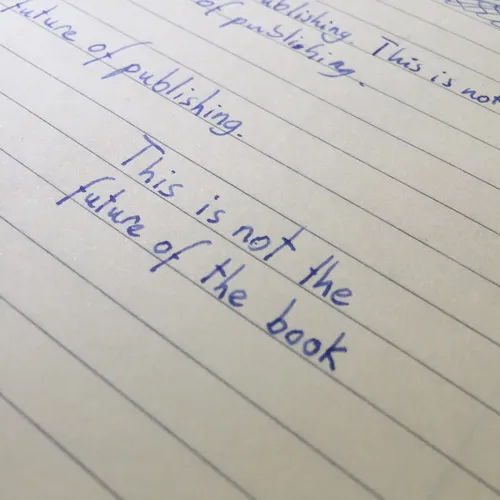 publishing. This is not
of publishing.
future of publishing.
This is not the
future of the book